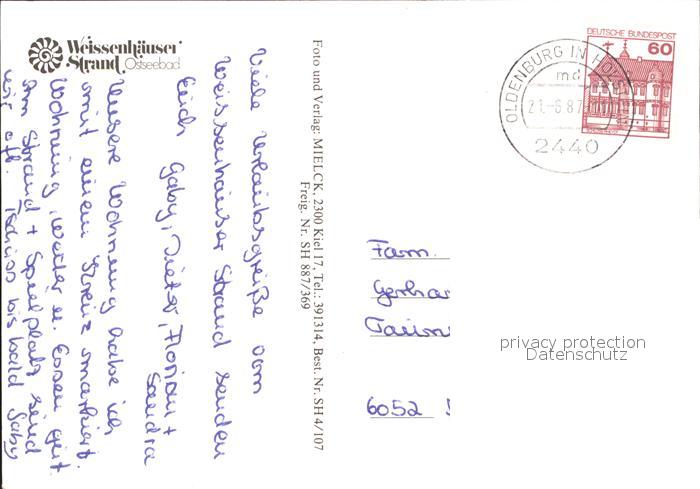 Weissenhäuser
Strand Ostseebad
Viele Urlaubsgrüße vom
Weissenhäuser Strand senden
Euch Gaby, Dieter, Florian +
Sandra
Unsere Wohnung habe ich
mit einem Kreuz markiert.
Wohnung, Wetter u. Essen gut
Am Strand + Spielplatz sind
wir oft. Tschüss bis bald Gaby
Foto und Verlag: MIELCK, 2300 Kiel 17, Tel.: 391314, Best. Nr. SH 4/107
Freig. Nr. SH 887/369
DEUTSCHE BUNDESPOST
60
OLDENBURG IN HOLSTEIN
md
21.-6.87
2440
Fam.
Gerhar
Taun
6052
privacy protection
Datenschutz